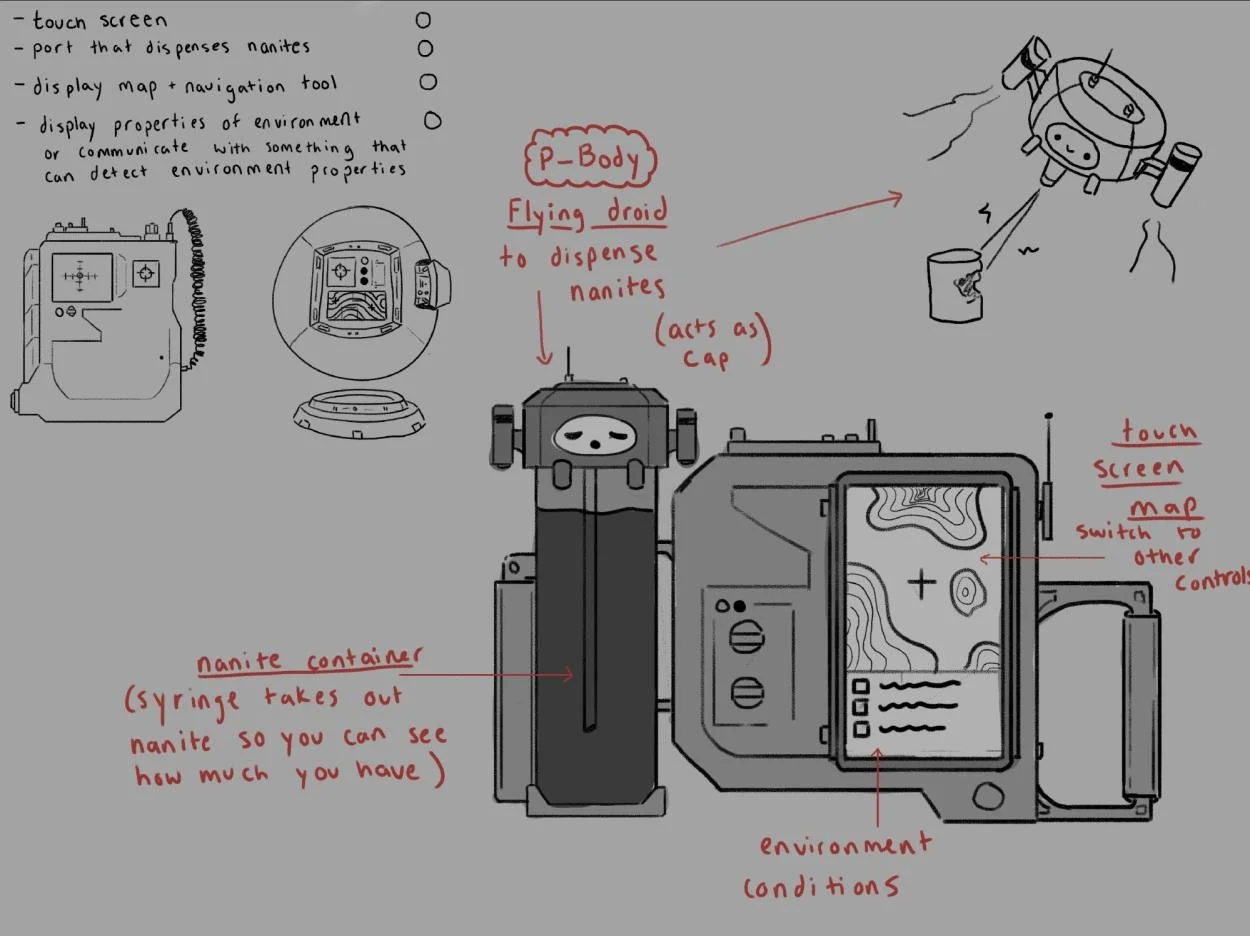 - touch screen
- port that dispenses nanites
- display map + navigation tool
- display properties of environment
or communicate with something that
can detect environment properties
P-Body
Flying droid
to dispense
nanites
(acts as
cap)
touch
screen
map
switch to
other
controls
nanite container
(syringe takes out
nanite so you can see
how much you have)
environment
conditions